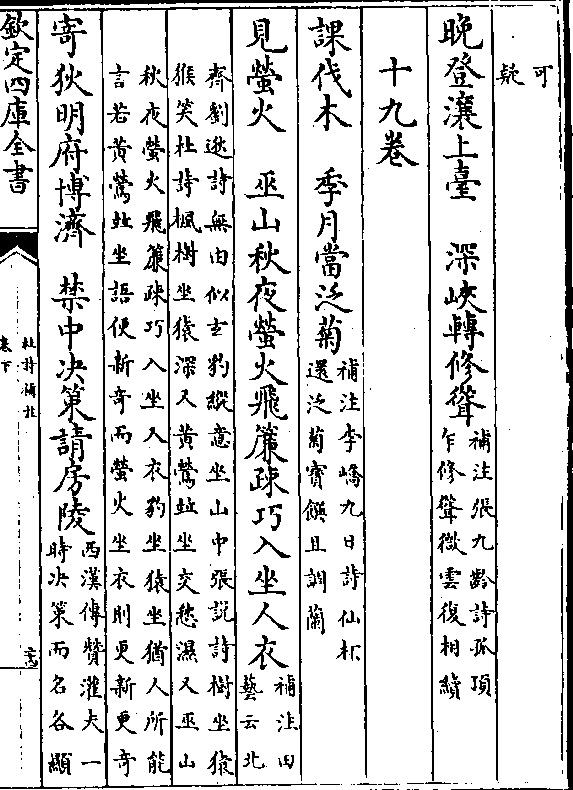 可
疑
晚登瀼上臺　深峽轉修聳
補注張九齡詩孤項
乍修聳微雲復相續
十九卷
課伐木　季月當泛菊
補注李嶠九日詩仙杯
還泛菊寶饌且調蘭
見螢火　巫山秋夜螢火飛簾疎巧入坐人衣
補注田
藝云北
齊劉逖詩無由似玄豹縱意坐山中張説詩樹坐猿
猴笑杜詩楓樹坐猿深又黃鶯並坐交愁濕又巫山
秋夜螢火飛簾疎巧入坐人衣豹坐猿坐猶人所能
言若黃鶯並坐語便新奇而螢火坐衣則更新更奇
寄狄明府博濟　禁中决策請房陵
西漢傳贊灌夫一
時决策而名各顯
欽定四庫全書
杜詩補註
卷下